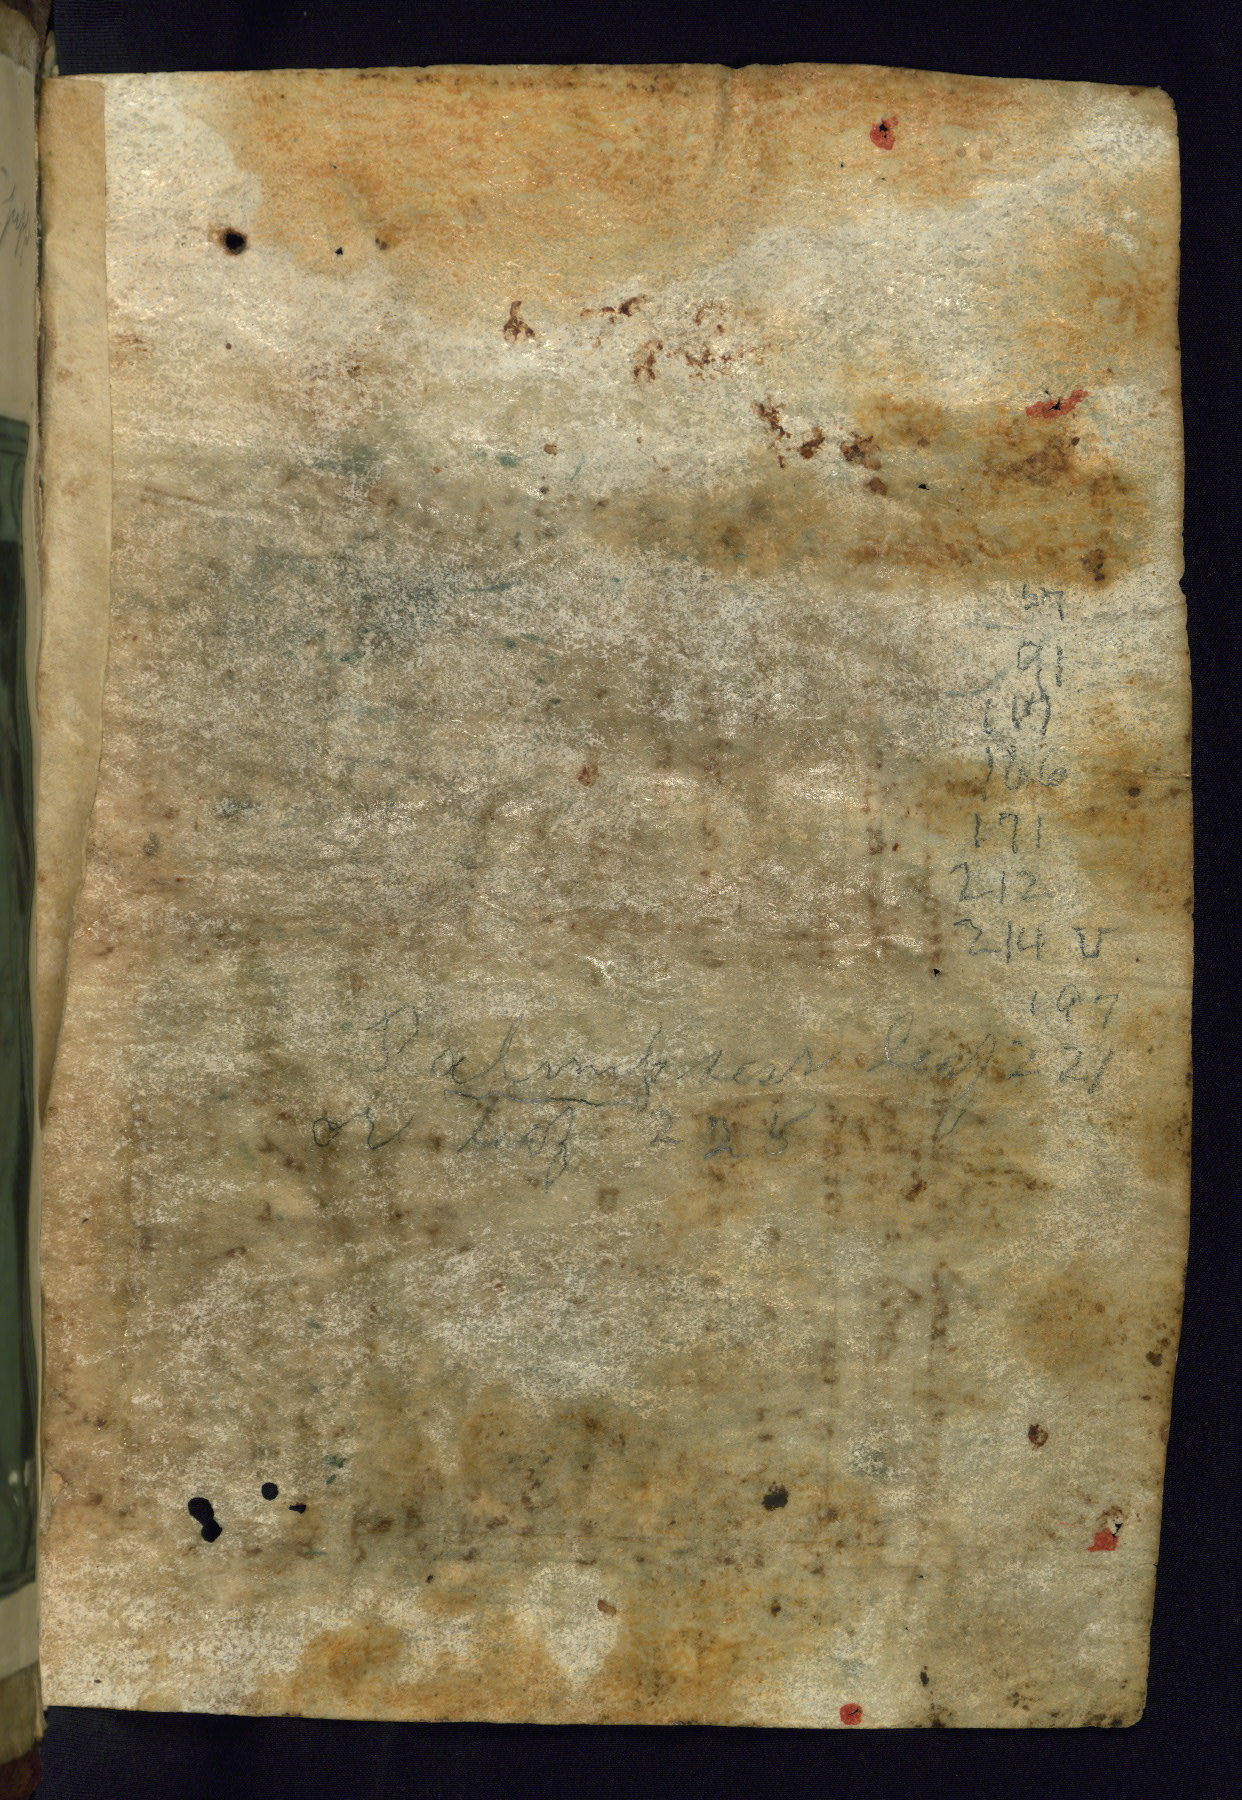 91
171
212
214 v
197
Palimpsest leaf 221
or leaf 225